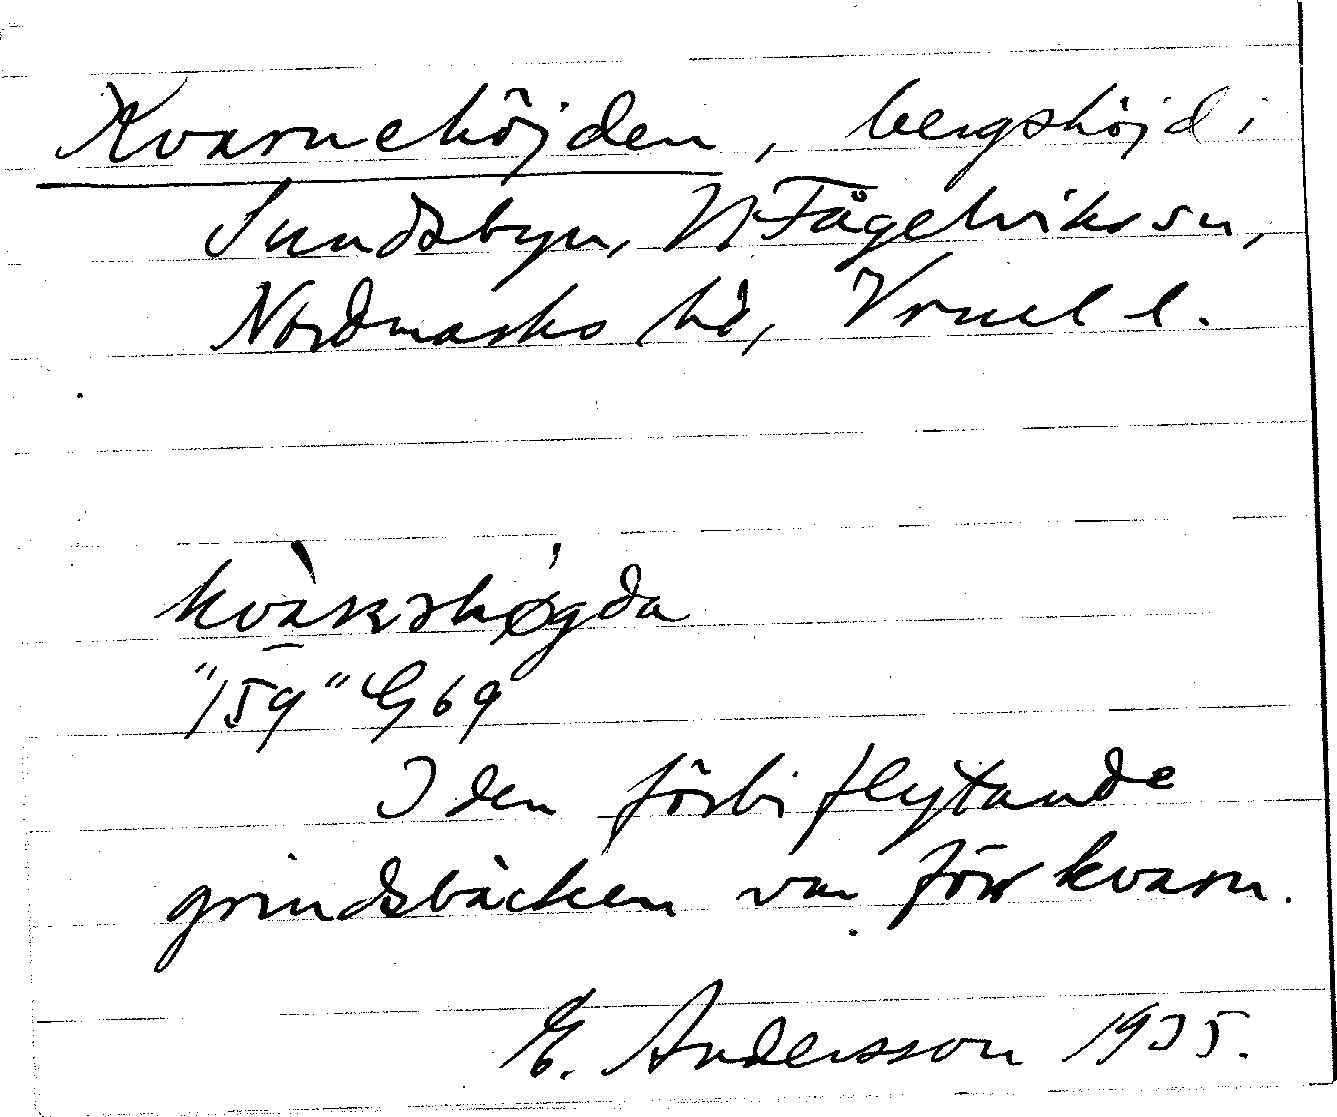 Kvarnehöjden, bergshöjd i
Sundsbyn, N Fågelviks sn,
Nordmarks hd, Vrml l.
"159" G 69
I den förbiflytande
grindsbäcken var förr kvarn.
E. Andersson 1935.